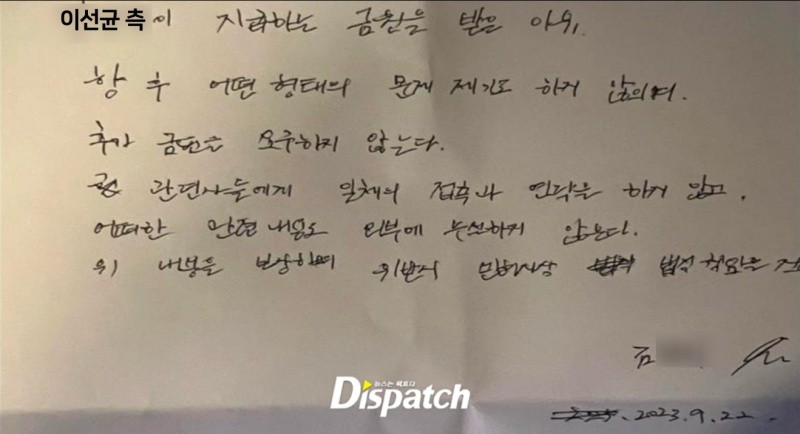 이선균 측이 지급하는 금원을 받은 이외,
향후 어떤 형태의 문제 제기도 하지 않으며,
추가 금전을 요구하지 않는다.
관련자들에게 일체의 접촉과 연락을 하지 않고,
어떠한 관련 내용도 외부에 누설하지 않는다.
위 내용을 보장하며 위반시 민형사상 법적 책임을
김
뉴스는 팩트다
Dispatch
2023.9.22.